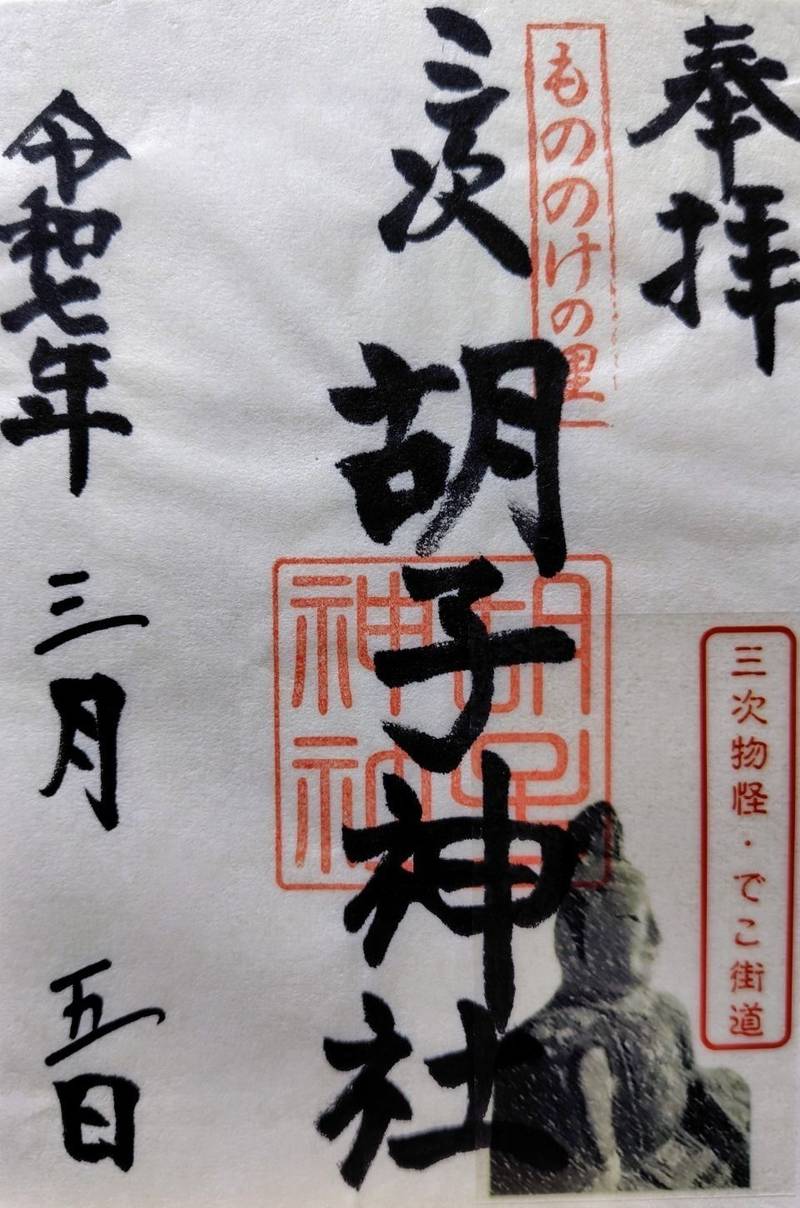 奉拝
三次物怪・でこ街道
もののけの里
三次 胡子神社
胡子
神社
令和七年 三月 五日